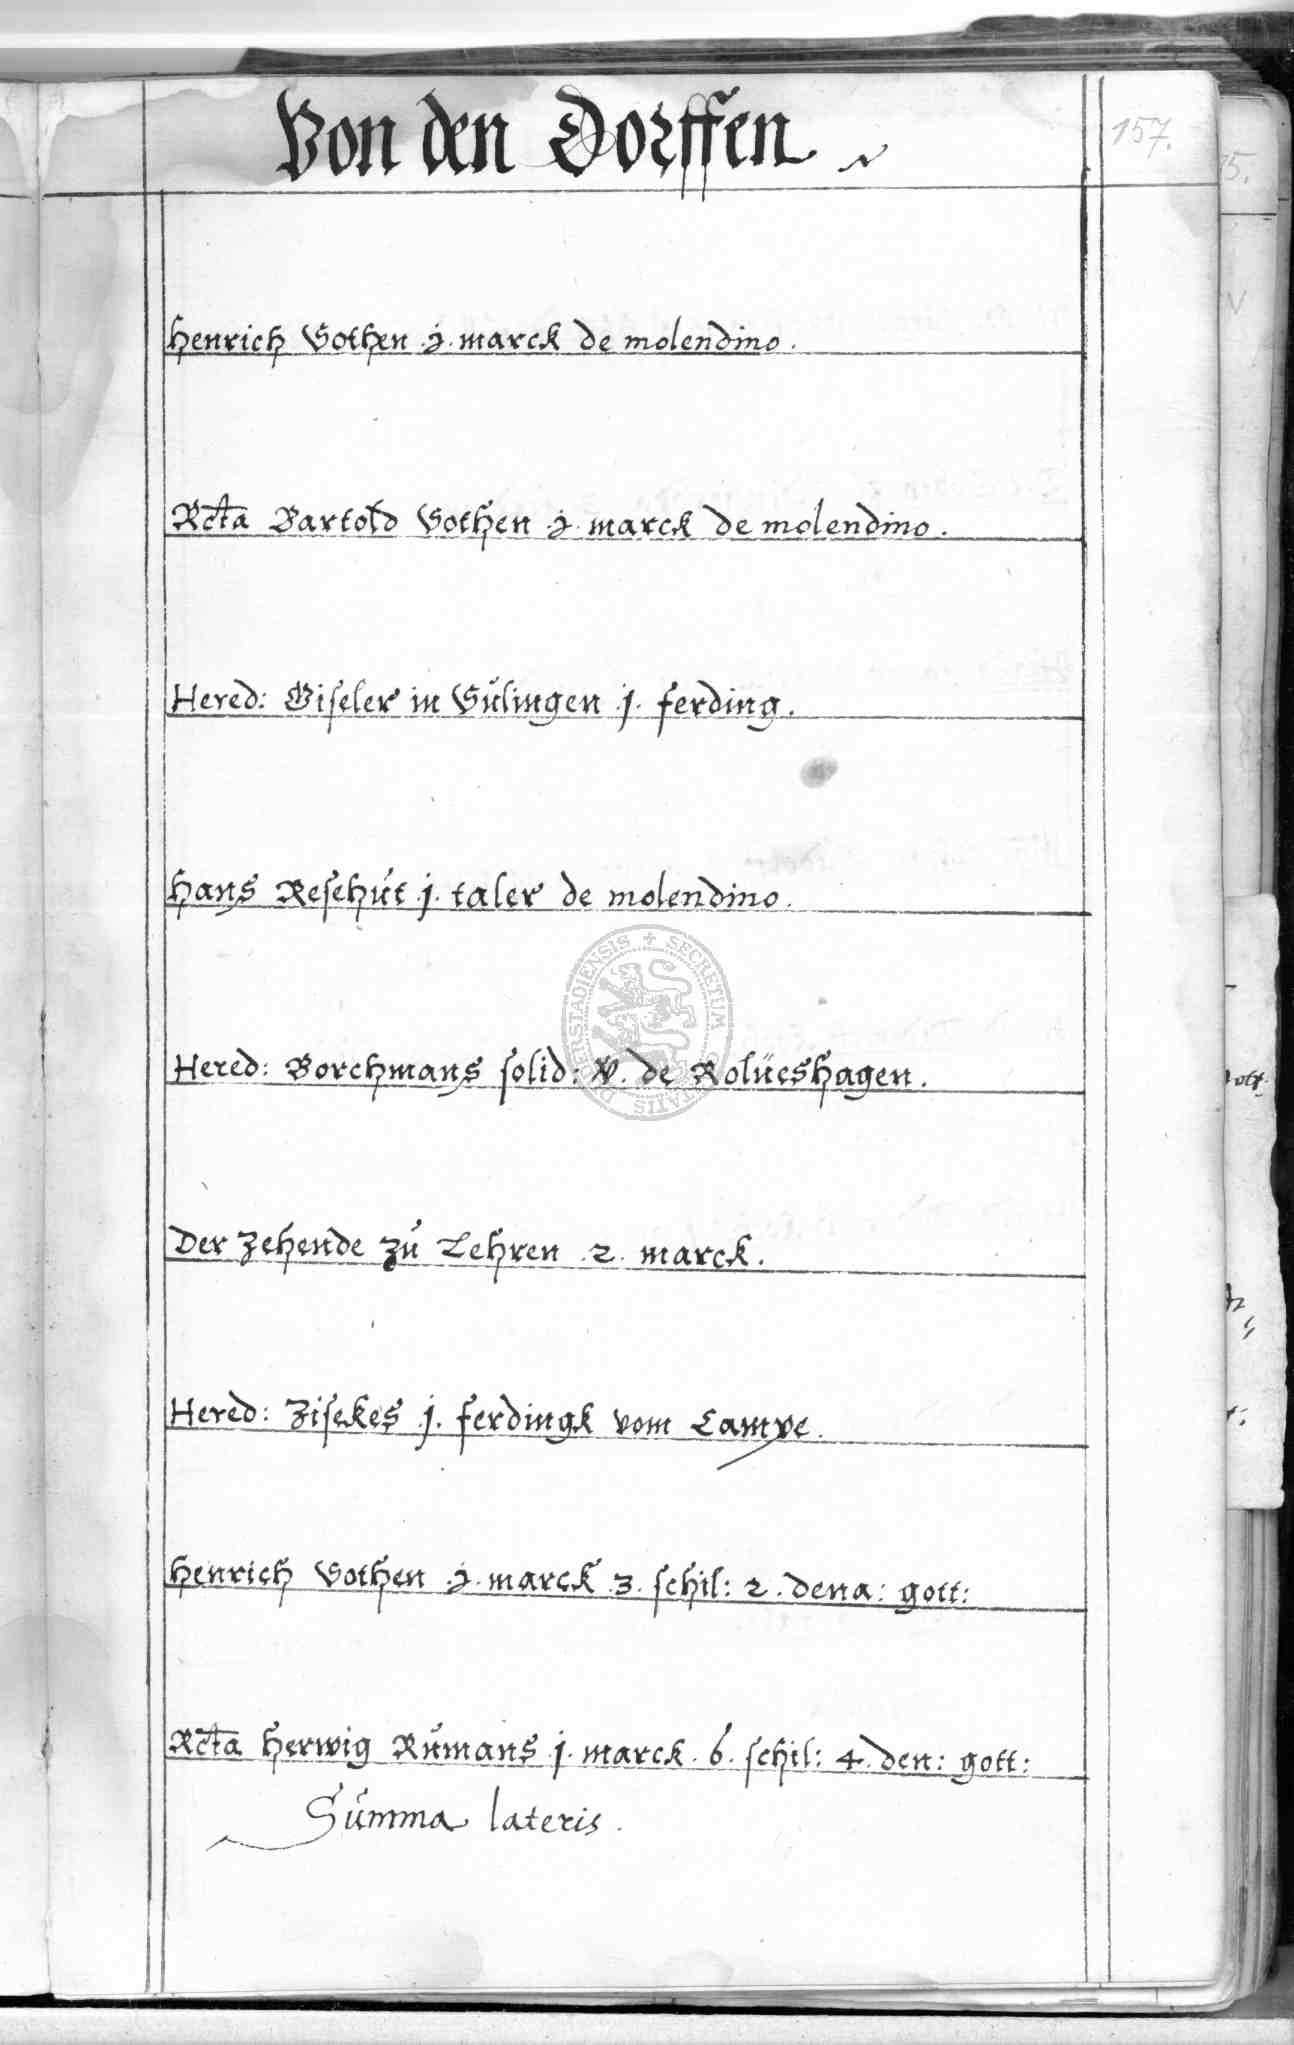 Von den Dorffen
157.
Henrich Vothen .j. marck de molendino.
Rcta Bartold Vothen .j. marck de molendino.
Hered: Giseler in Sulingen .j. ferding.
Hans Resehut .j. taler de molendino.
Hered: Borchmans solid: V. de Rolueshagen.
Der Zehende zu Lehren .2. marck.
Hered: Zisekes .j. ferdingk vom Campe.
Henrich Vothen .j. marck .3. schil: 2. dena: gott:
Rcta Herwig Rumans .j. marck. 6. schil: 4. den: gott:
Summa lateris.